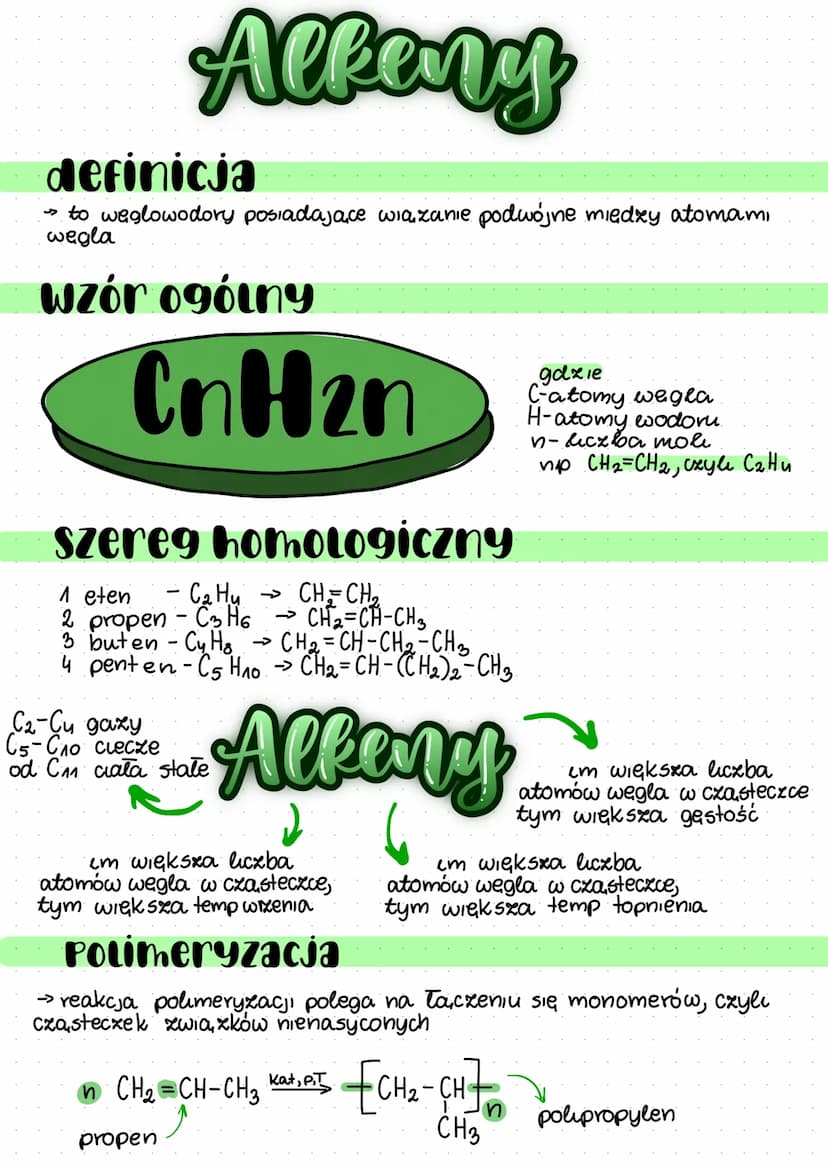 Alkeny
definicja
→ to węglowodory posiadające wiązanie podwójne między atomami
węgla
wzór ogólny
CnH2n
gdzie
C-atomy węgla
H-atomy wodoru
n-liczba moli
np CH₂=CH₂, czyli C₂H₄
szereg homologiczny
1 eten - C₂H₄ → CH₂=CH₂
2 propen - C₃H₆ → CH₂=CH-CH₃
3 buten - C₄H₈ → CH₂=CH-CH₂-CH₃
4 penten - C₅H₁₀ → CH₂=CH-(CH₂)₂-CH₃
C₂-C₄ gazy
C₅-C₁₀ ciecze
od C₁₁ ciała stałe
Alkeny
im większa liczba
atomów węgla w cząsteczce
tym większa gęstość
im większa liczba
atomów węgla w cząsteczce,
tym większa temp wrzenia
im większa liczba
atomów węgla w cząsteczce,
tym większa temp topnienia
polimeryzacja
→ reakcja polimeryzacji polega na łączeniu się monomerów, czyli
cząsteczek związków nienasyconych
n CH₂=CH-CH₃ kat,p,T → -[CH₂-CH]-n
CH₃
propen
polipropylen